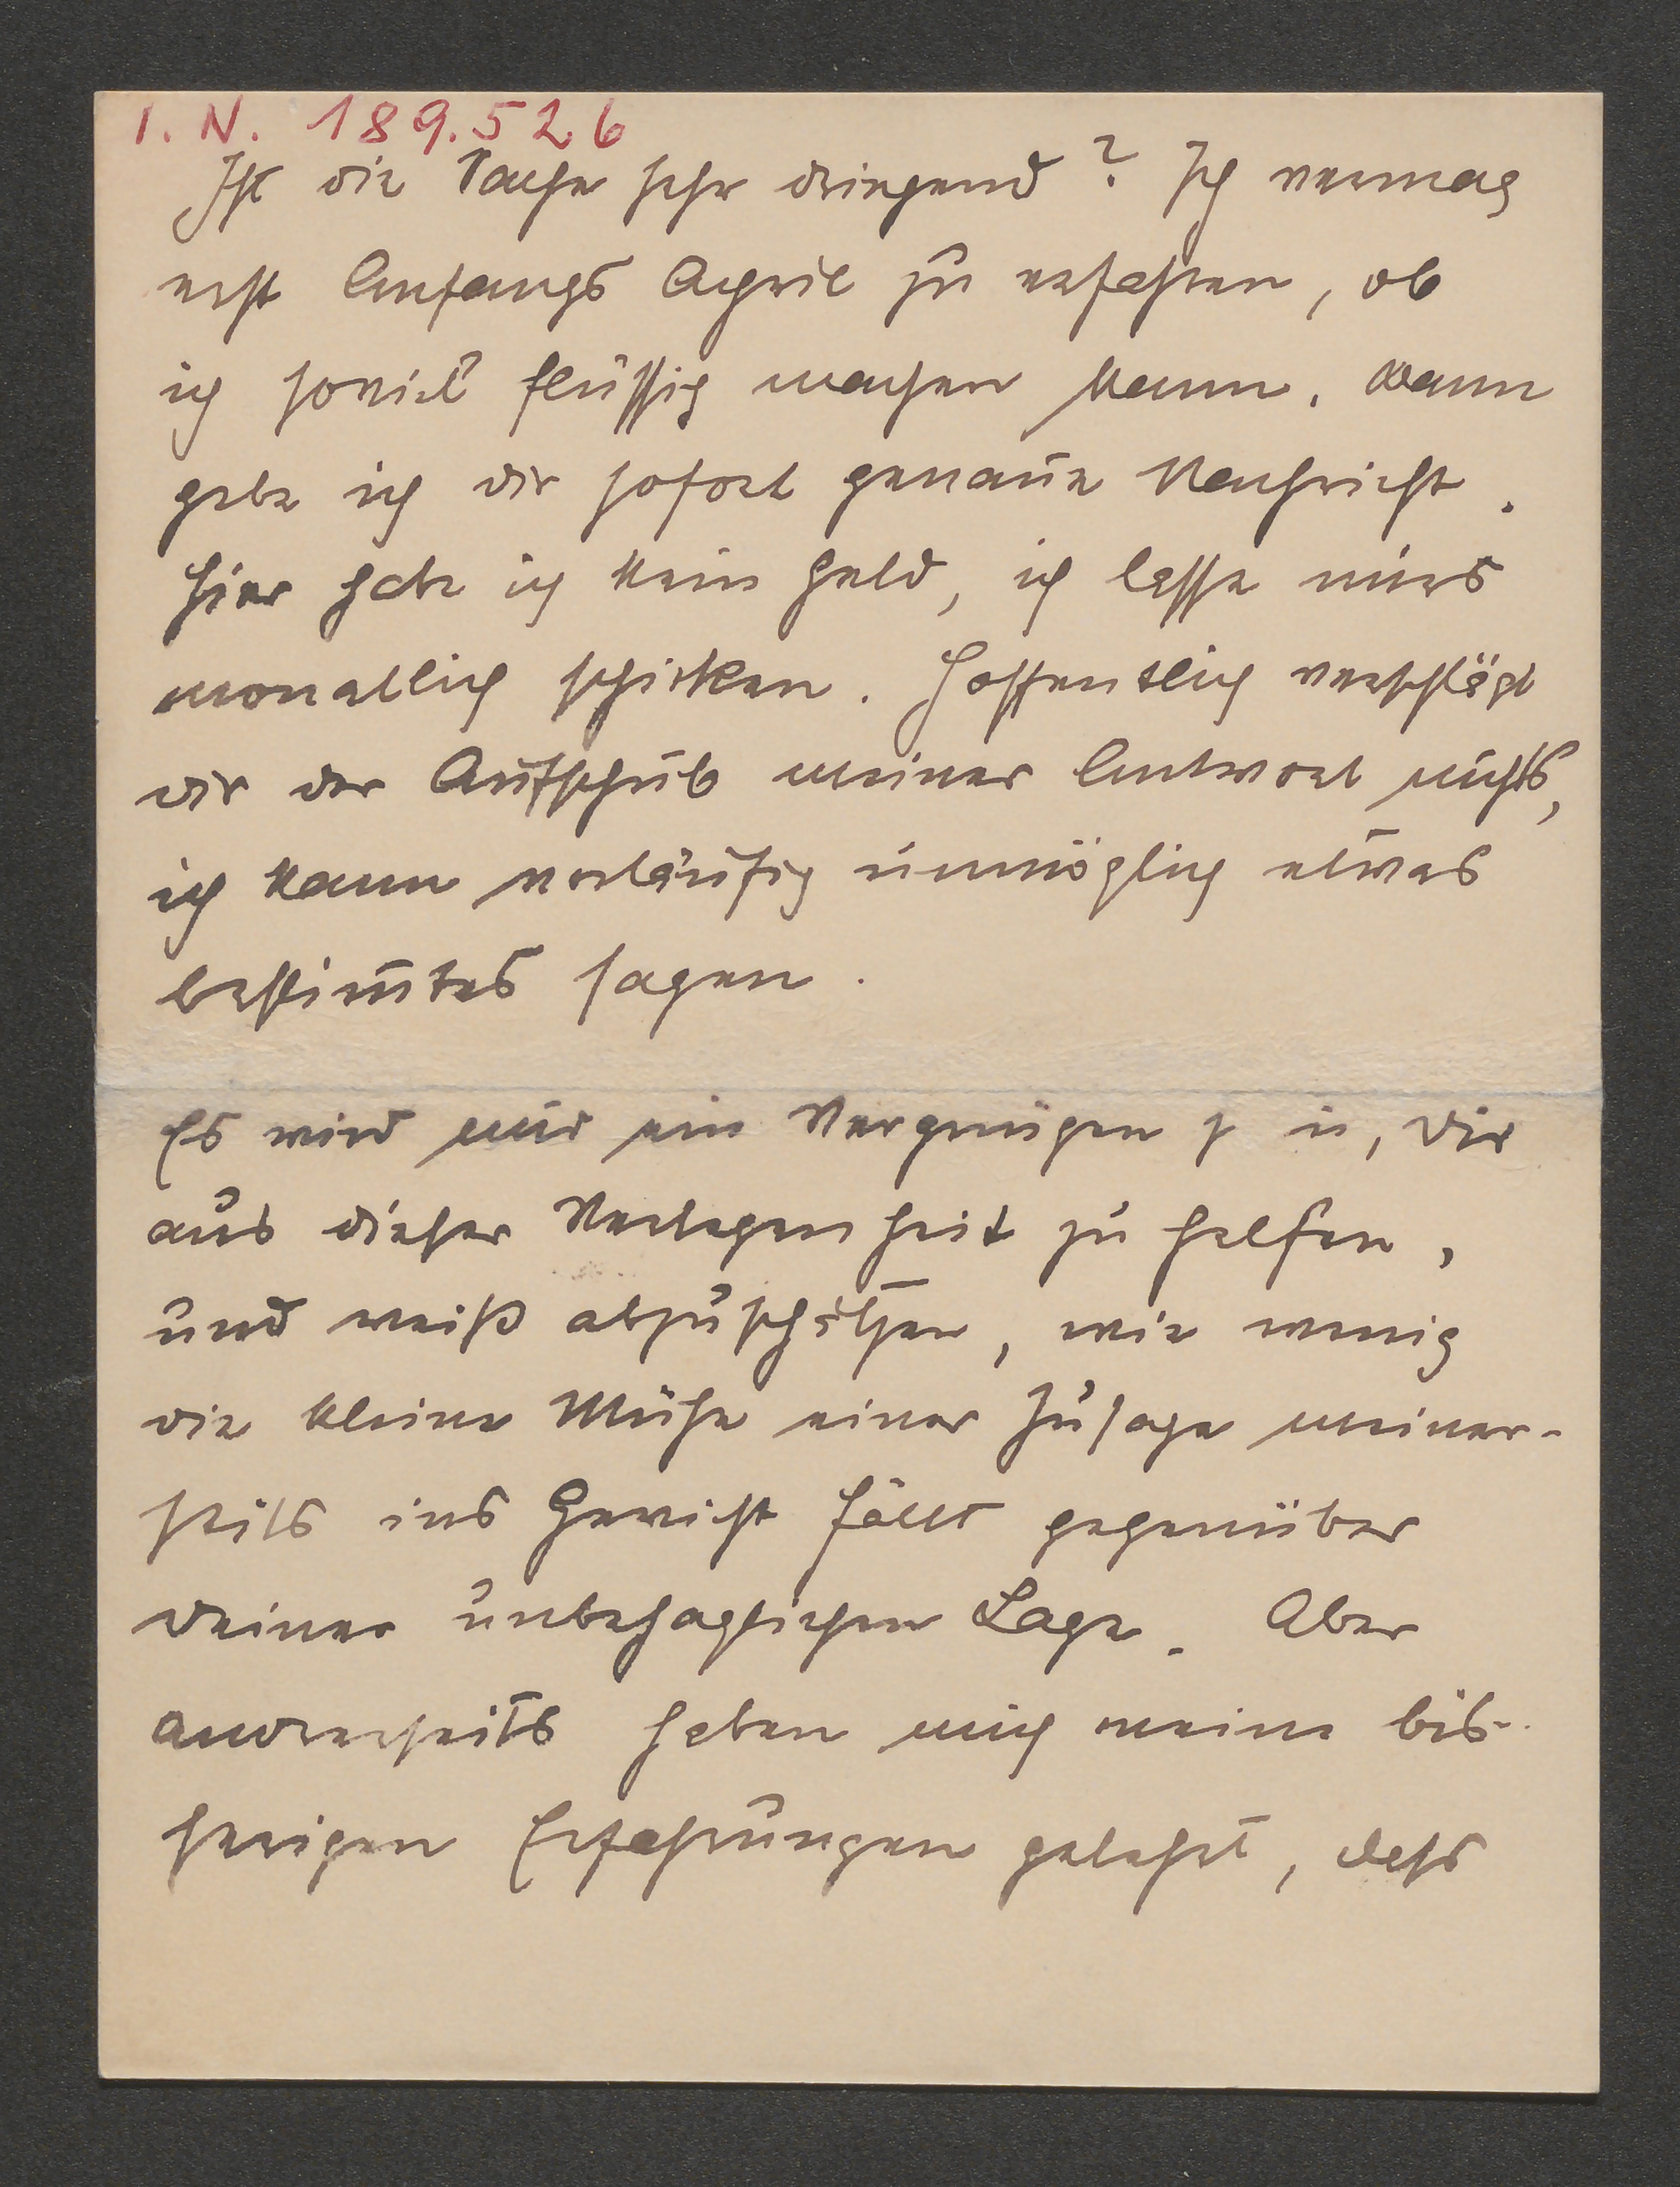 I. N. 189.526
Ist die Sache sehr dringend? Ich vermag
erst Anfangs April zu erfahren, ob
ich soviel flüssig machen kann. Dann
gebe ich dir sofort genaue Nachricht.
Hier habe ich kein Geld, ich lasse mirs
monatlich schicken. Hoffentlich verschlägt
dir der Aufschub meiner Antwort nichts,
ich kann vorläufig unmöglich etwas
bestim̅tes sagen.
Es wird mir ein Vergnügen sein, dir
aus dieser Verlegenheit zu helfen,
und weiß abzuschätzen, wie wenig
die kleine Mühe einer Zusage meiner-
seits ins Gewicht fällt gegenüber
deiner unbehaglichen Lage. Aber
andrerseits haben mich meine bis-
herigen Erfahrungen gelehrt, dass